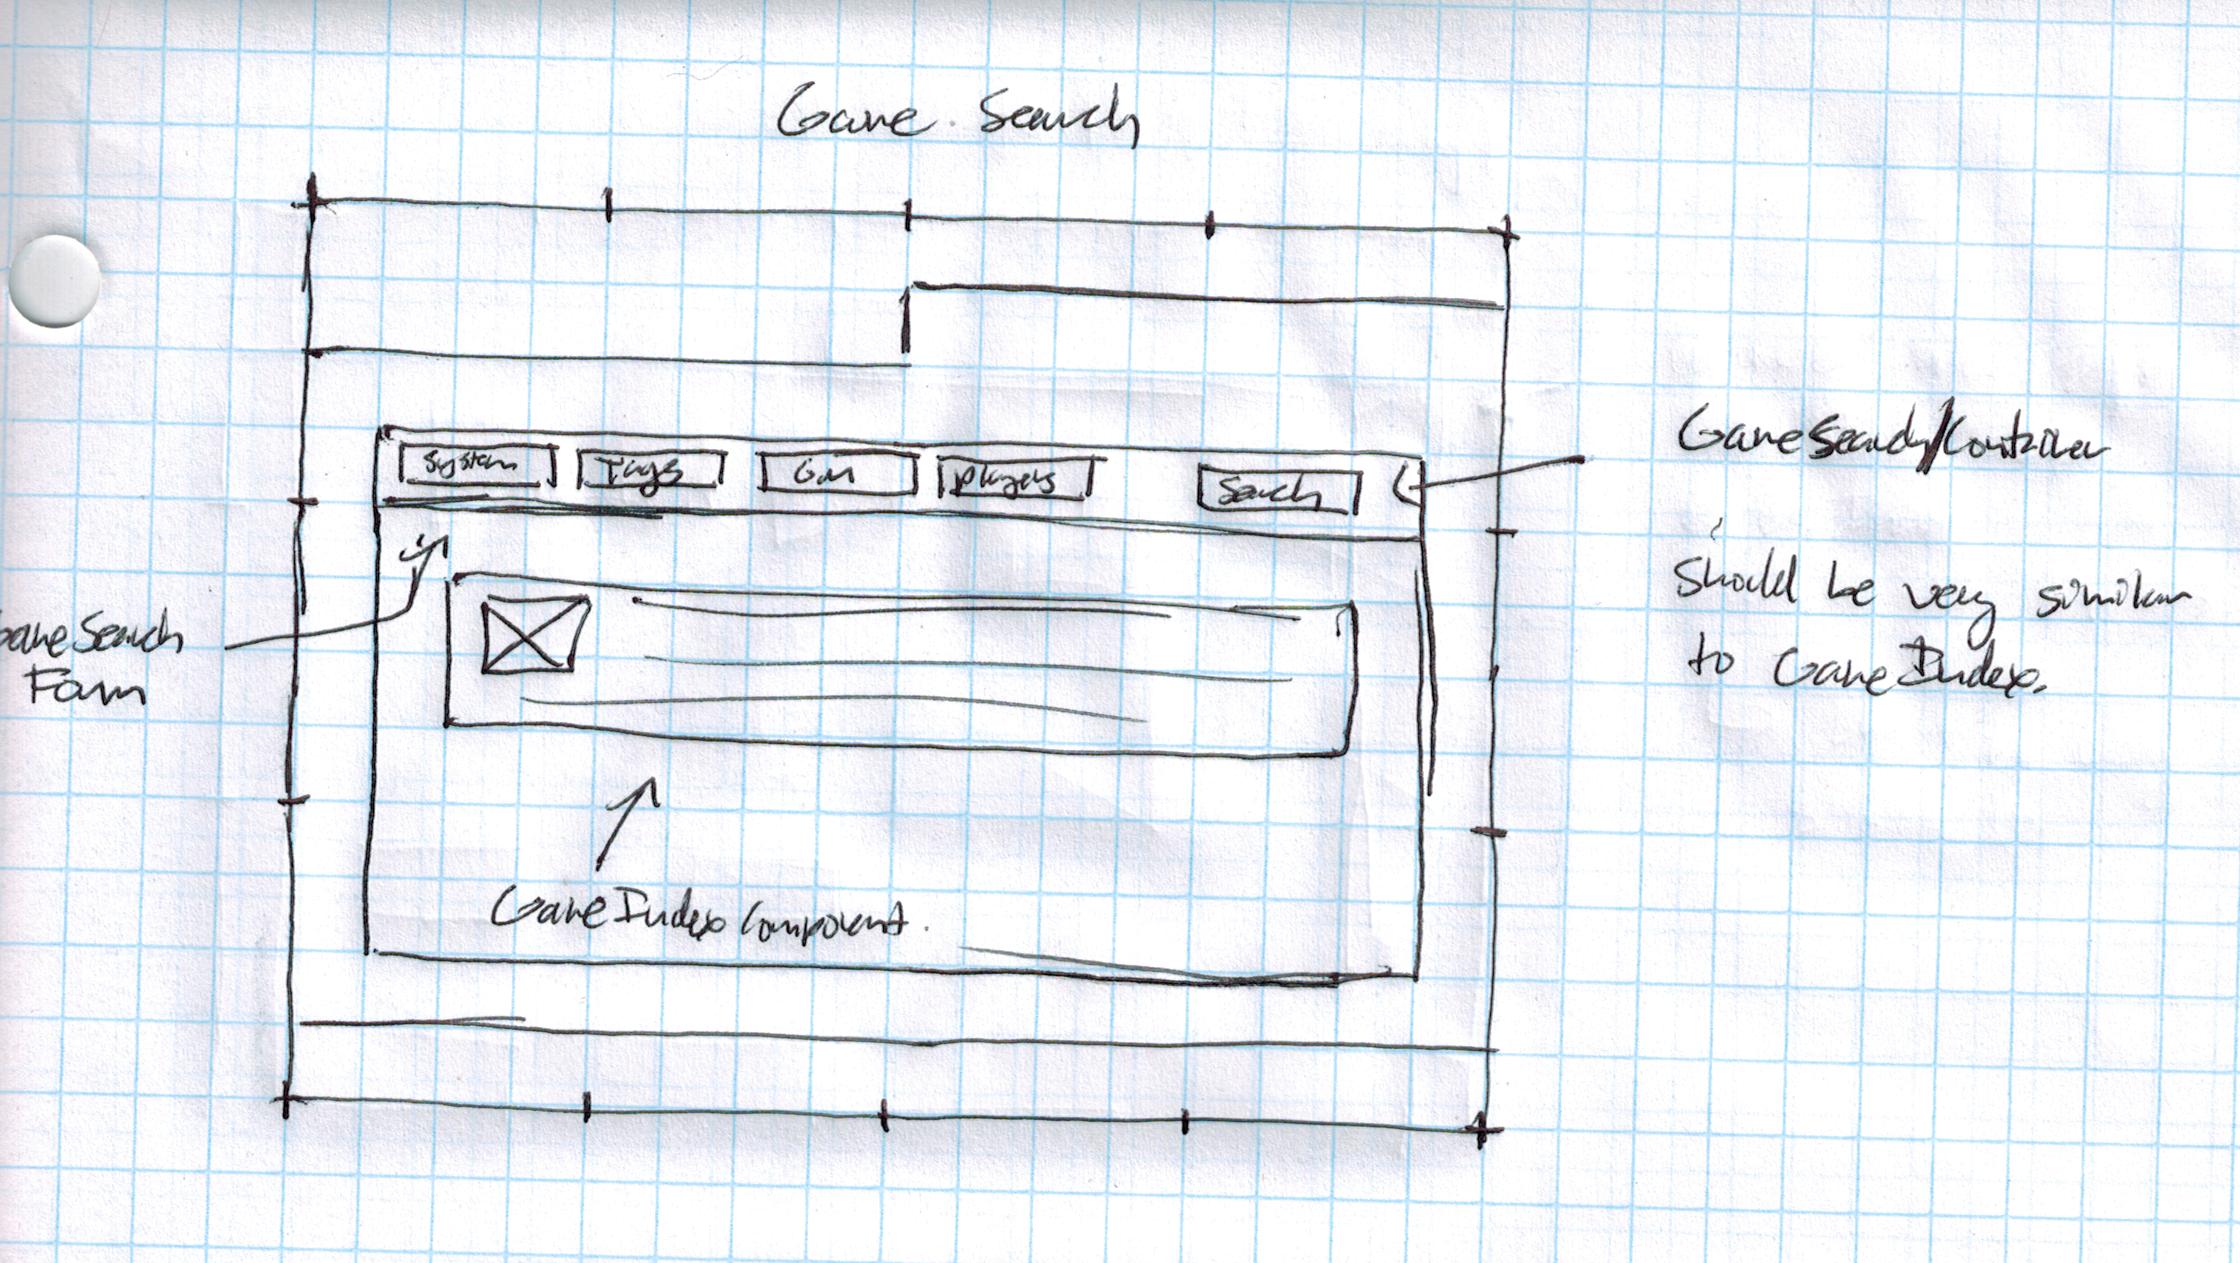 Game Search
System Tags GM players Search
GameSearch/Container
Should be very similar
to GameIndex.
GameSearch
Form
GameIndex Component.